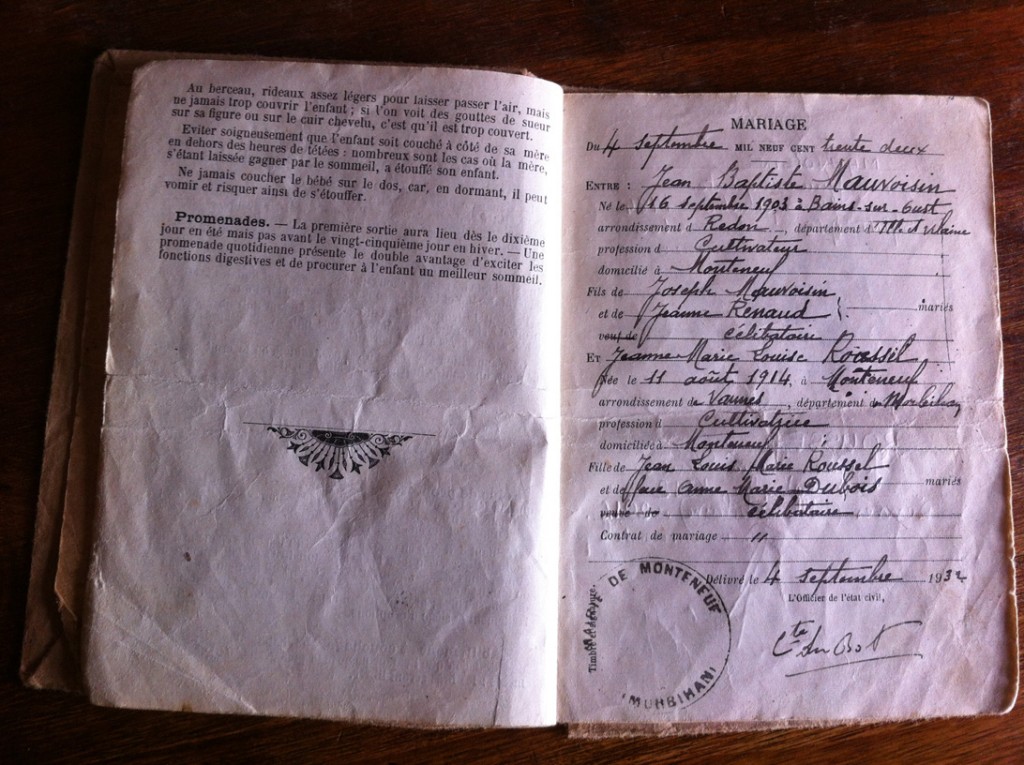 Au berceau, rideaux assez légers pour laisser passer l'air, mais
ne jamais trop couvrir l'enfant ; si l'on voit des gouttes de sueur
sur sa figure ou sur le cuir chevelu, c'est qu'il est trop couvert.
Eviter soigneusement que l'enfant soit couché à côté de sa mère
en dehors des heures de tétées : nombreux sont les cas où la mère,
s'étant laissée gagner par le sommeil, a étouffé son enfant.
Ne jamais coucher le bébé sur le dos, car, en dormant, il peut
vomir et risquer ainsi de s'étouffer.
Promenades. — La première sortie aura lieu dès le dixième
jour en été mais pas avant le vingt-cinquième jour en hiver. — Une
promenade quotidienne présente le double avantage d'exciter les
fonctions digestives et de procurer à l'enfant un meilleur sommeil.
MARIAGE
Du 4 septembre MIL NEUF CENT trente deux
ENTRE : Jean Baptiste Mauvoisin
Né le 16 septembre 1903 à Bains-sur-Oust
arrondissement d Redon, département d'Ille et Vilaine
profession d Cultivateur
domicilié à Monteneuf
Fils de Joseph Mauvoisin
et de Jeanne Renaud mariés
veuf de célibataire
ET Jeanne Marie Louise Roussel
Née le 11 août 1914, à Monteneuf
arrondissement de Vannes, département du Morbihan
profession d Cultivatrice
domiciliée à Monteneuf
Fille de Jean Louis Marie Roussel
et de Anne Marie Dubois mariés
veuve de célibataire
Contrat de mariage "
Délivré le 4 septembre 1932
L'Officier de l'état civil,
Cte du Bot
MAIRIE DE MONTENEUF
(MORBIHAN)
Timbre de la